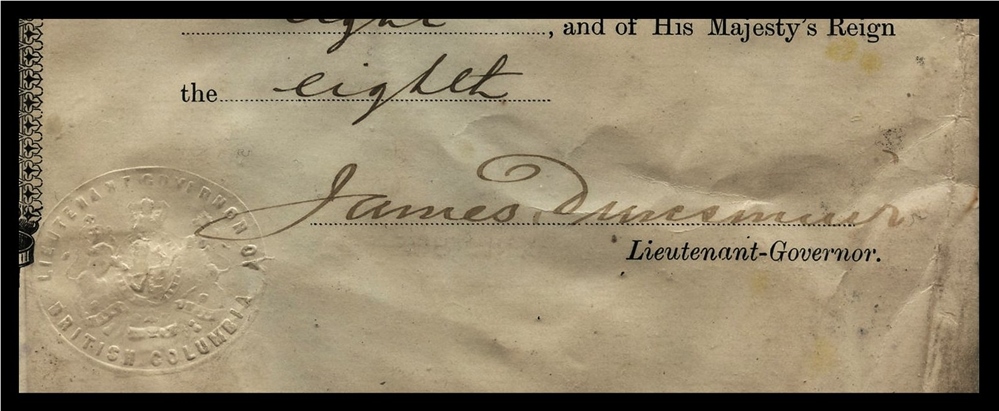 eight, and of His Majesty's Reign
the eighth
James Dunsmuir
Lieutenant-Governor.
LIEUTENANT GOVERNOR OF
BRITISH COLUMBIA